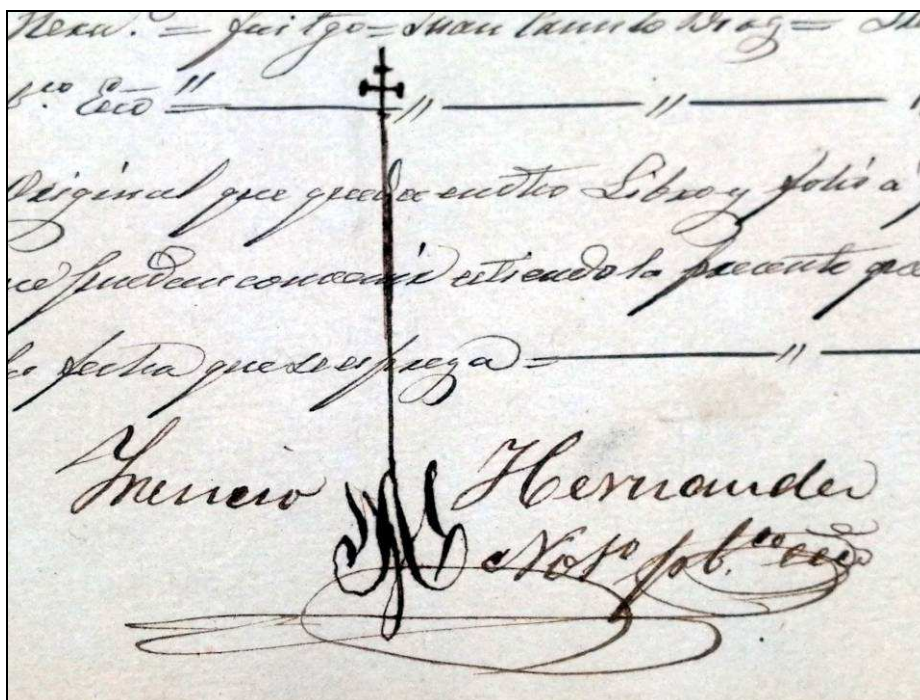 Hern.º = fui tgo = Juan Camilo Diaz =
b.co Ecco "= " "
Original que queda en dho Libro y folio a
que puedan convenir estiendo la presente que
la fecha que se espreza = "
Hernandez
Not.º pb.co ecco